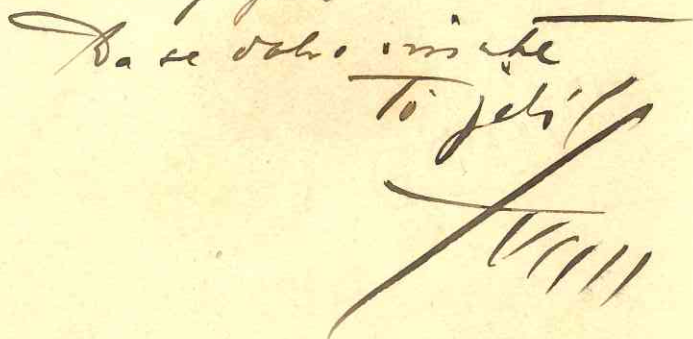 Da se dobro imate
To želi
Ivan